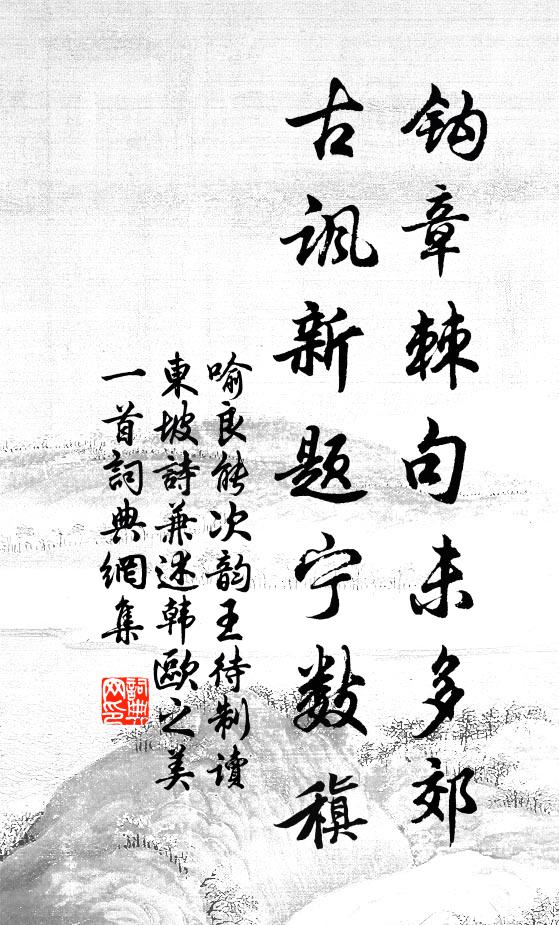 钩章棘句未多郊
古讽新题宁数稹
喻良能次韵王待制读
東坡詩兼述韩歐之美
一首詞典網集
詞典
网印